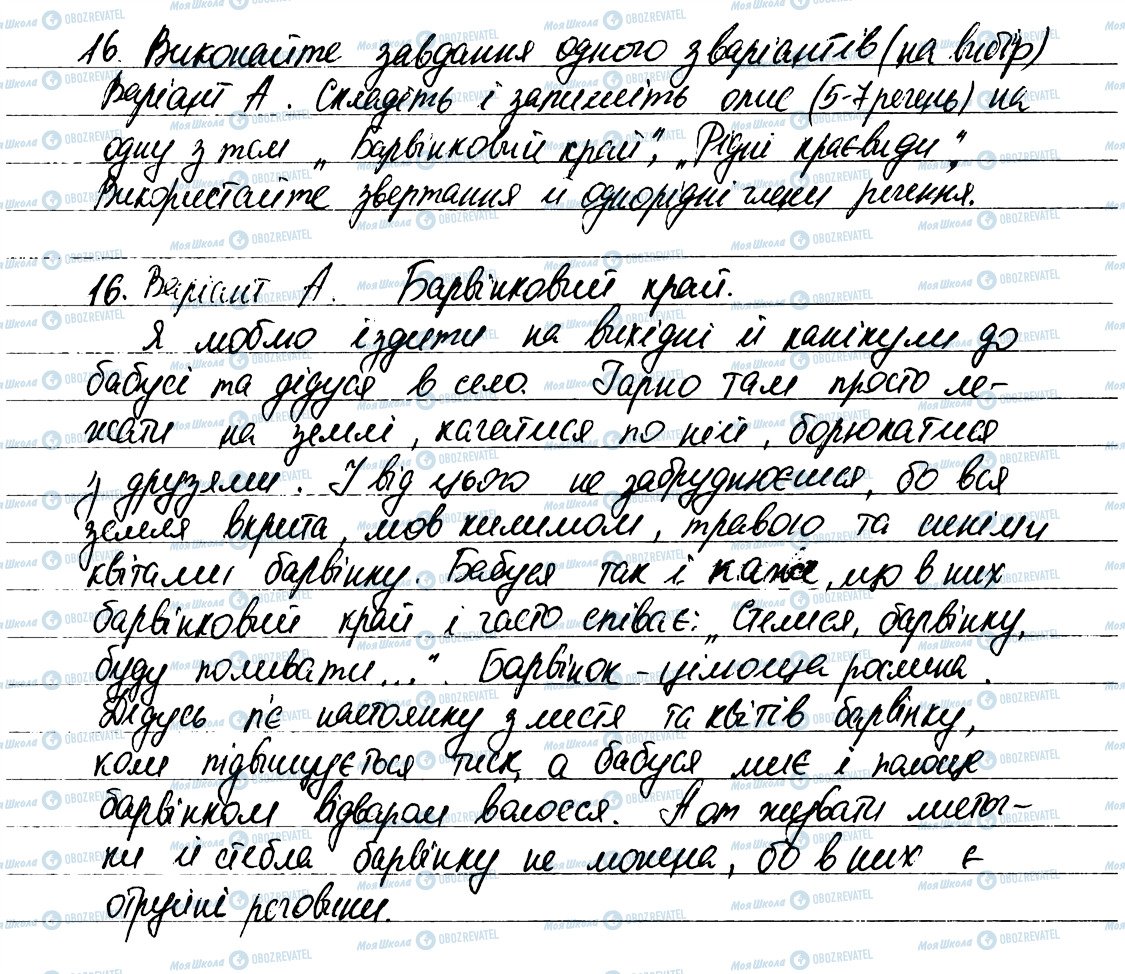 16. Виконайте завдання одного з варіантів (на вибір)
Варіант А. Складіть і запишіть опис (5-7 речень) на
одну з тем „Барвінковий край", „Рідні краєвиди".
Використайте звертання й однорідні члени речення.
16. Варіант А. Барвінковий край.
Я люблю їздити на вихідні й канікули до
бабусі та дідуся в село. Гарно там просто ле-
жати на землі, качатися по ній, борюкатися
з друзями. І від цього не забруднюєшся, бо вся
земля вкрита, мов килимом, травою та синіми
квітами барвінку. Бабуся так і каже, що в них
барвінковий край і часто співає: „Стелися, барвінку,
буду поливати...". Барвінок - цілюща рослина.
Дідусь п'є настоянку з листя та квітів барвінку,
коли підвышується тиск, а бабуся миє і полоще
барвінком відваром волосся. А от жувати листоч-
ки й стебла барвінку не можна, бо в них є
отруйні речовини.